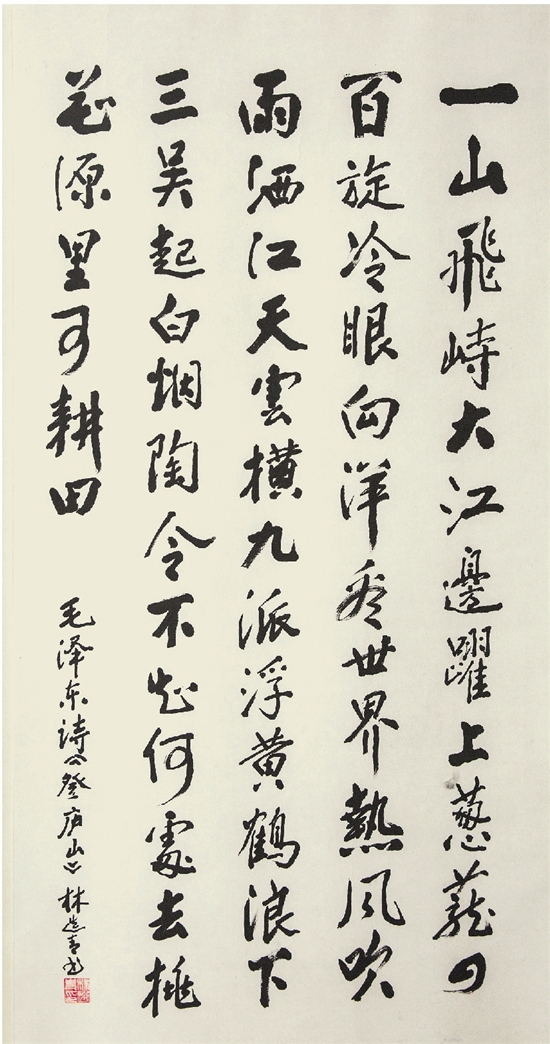 一山飛峙大江邊躍上葱蘢四
百旋冷眼向洋看世界熱風吹
雨洒江天雲横九派浮黄鶴浪下
三吴起白烟陶令不知何處去桃
花源里可耕田
毛泽东诗《登庐山》林造青书